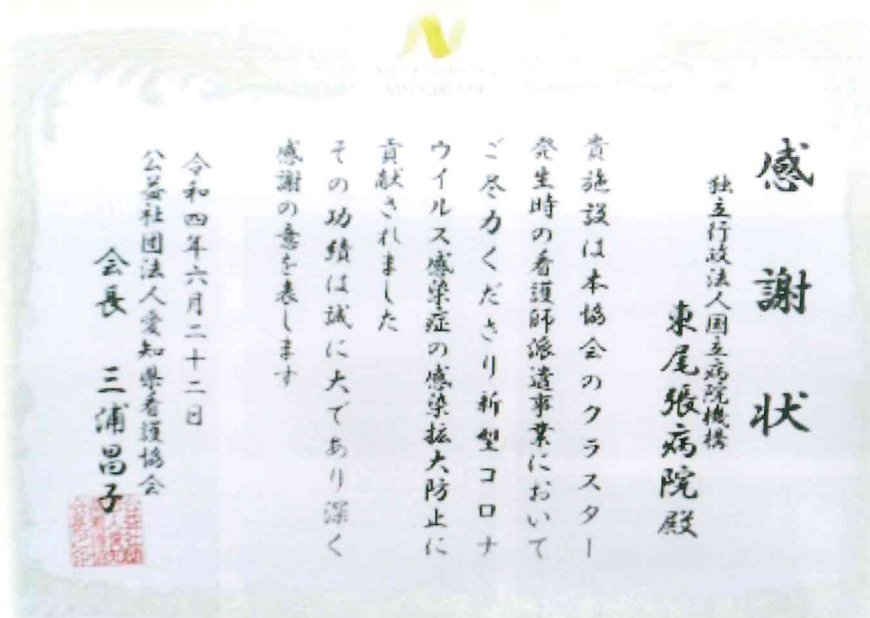 感謝状
独立行政法人国立病院機構
東尾張病院殿
貴施設は本協会のクラスター
発生時の看護師派遣事業において
ご尽力くださり新型コロナ
ウイルス感染症の感染拡大防止に
貢献されました
その功績は誠に大であり深く
感謝の意を表します
令和四年六月二十二日
公益社団法人愛知県看護協会
会長 三浦昌子